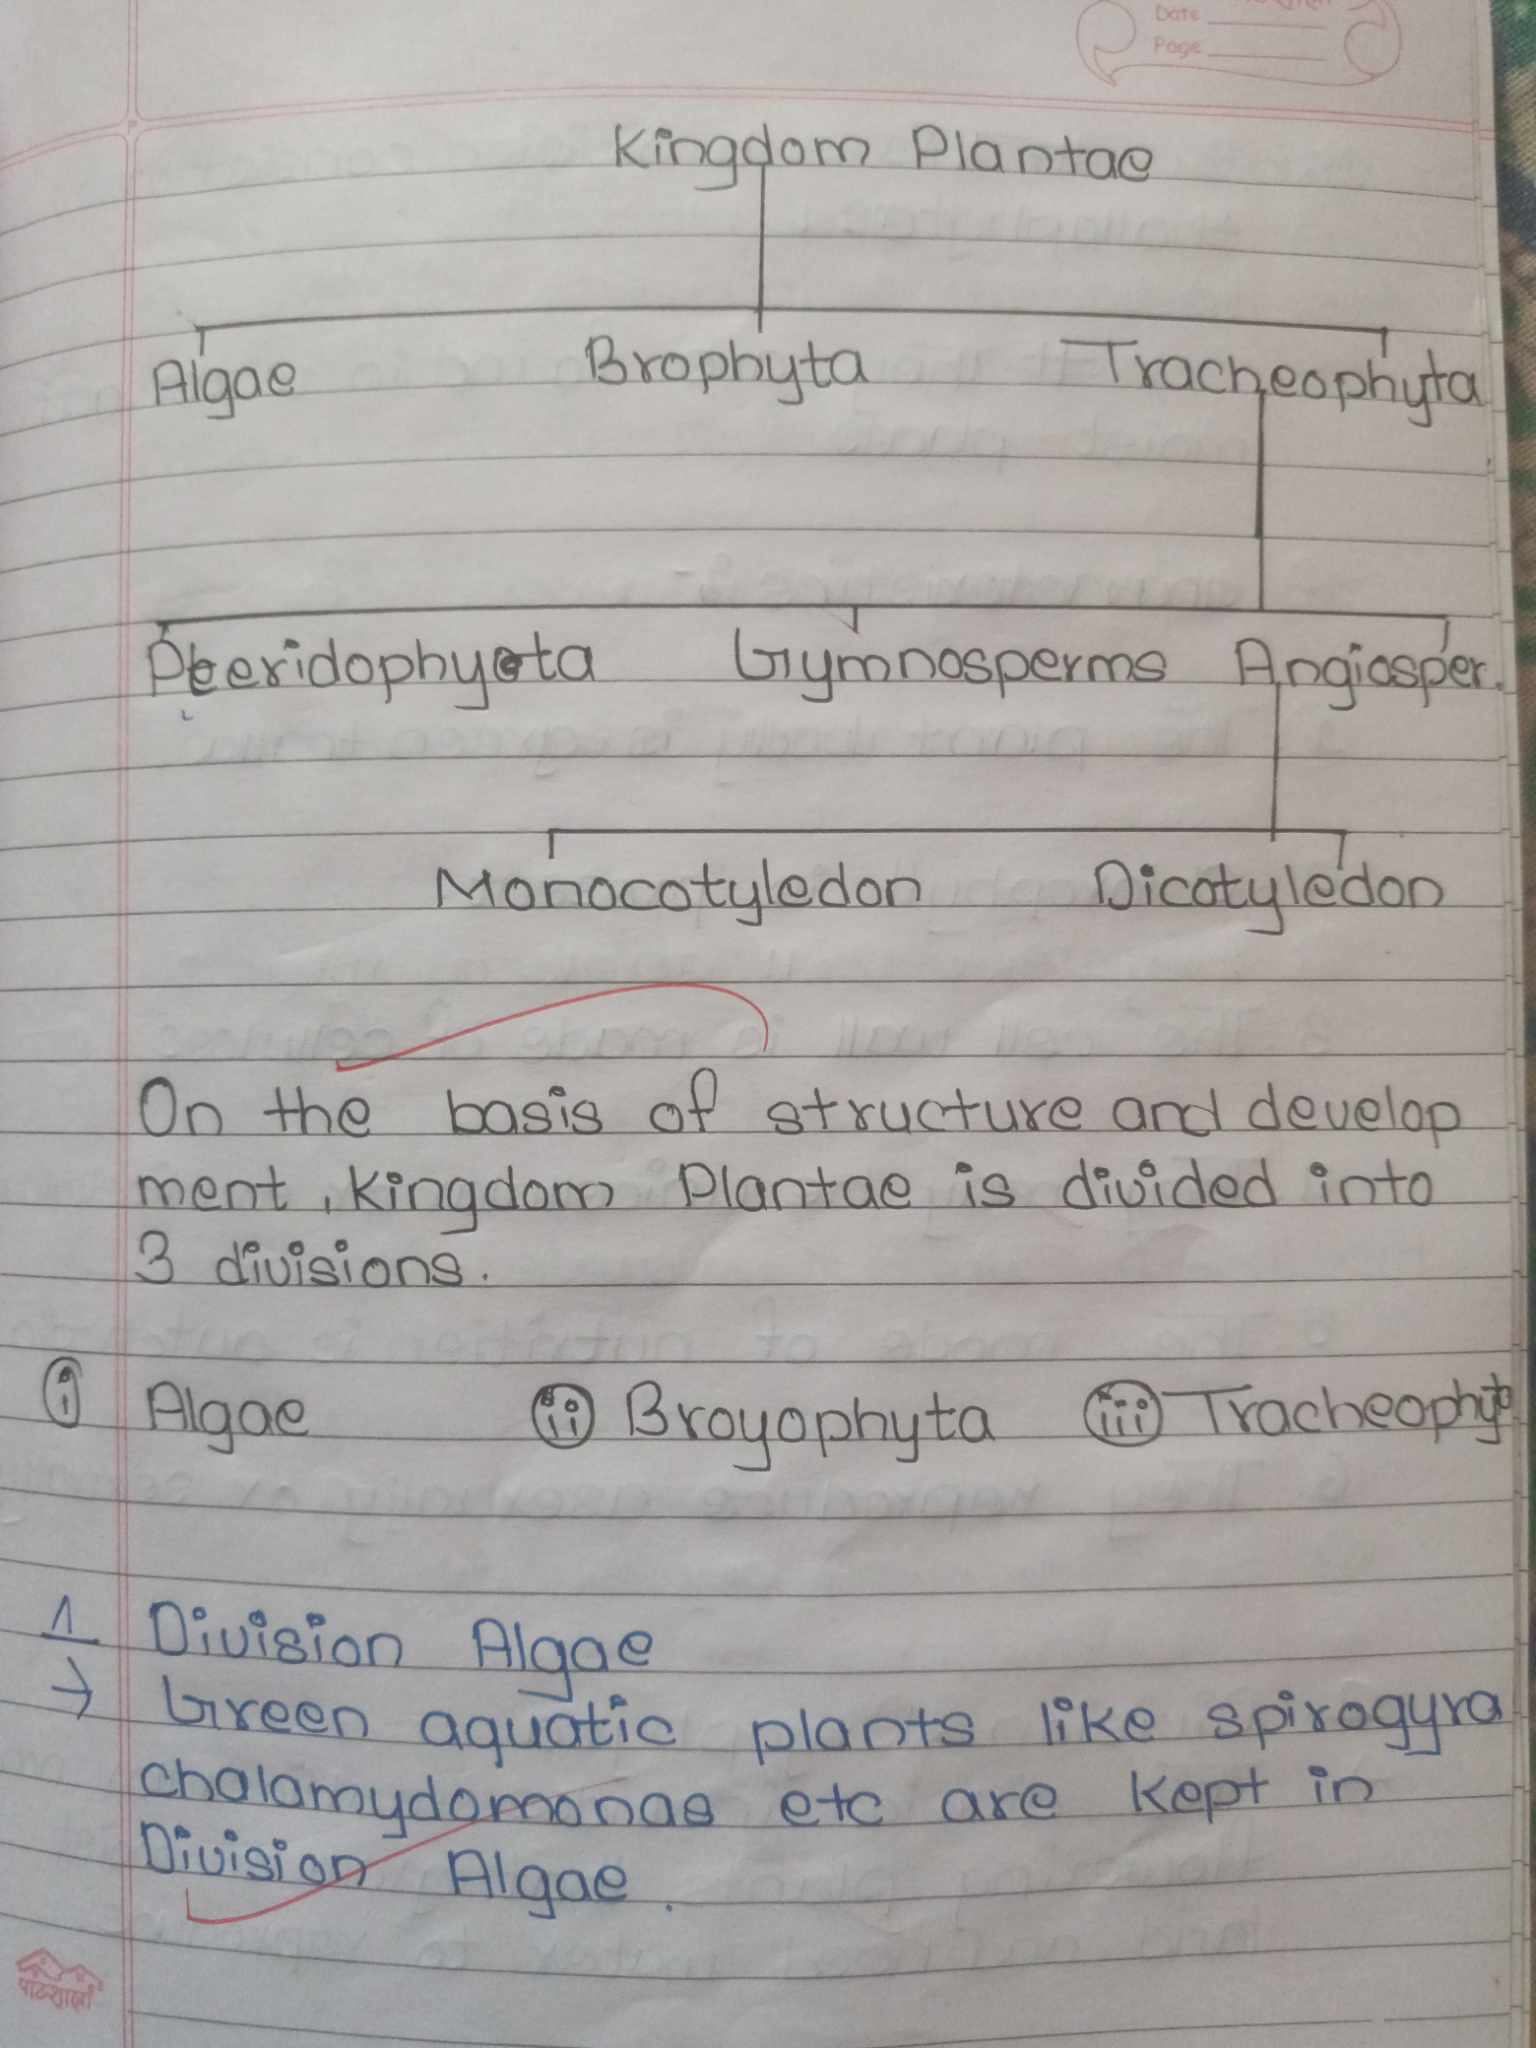 Date
Page
Kingdom Plantae
Algae Brophyta Tracheophyta
Pteridophyta Gymnosperms Angiosper.
Monocotyledon Dicotyledon
On the basis of structure and develop
ment, Kingdom Plantae is divided into
3 divisions.
i Algae ii Broyophyta iii Tracheophyt
1 Division Algae
→ Green aquatic plants like spirogyra
chalamydomonas etc are kept in
Division Algae.
पाठशाला